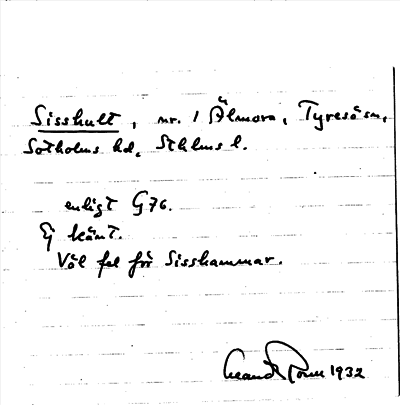 Sisshult, nr. 1 Älmora, Tyresö sn,
Sotholms hd, Sthlms l.
enligt G76.
Ej känt.
Väl fel för Sisshammar.
1932